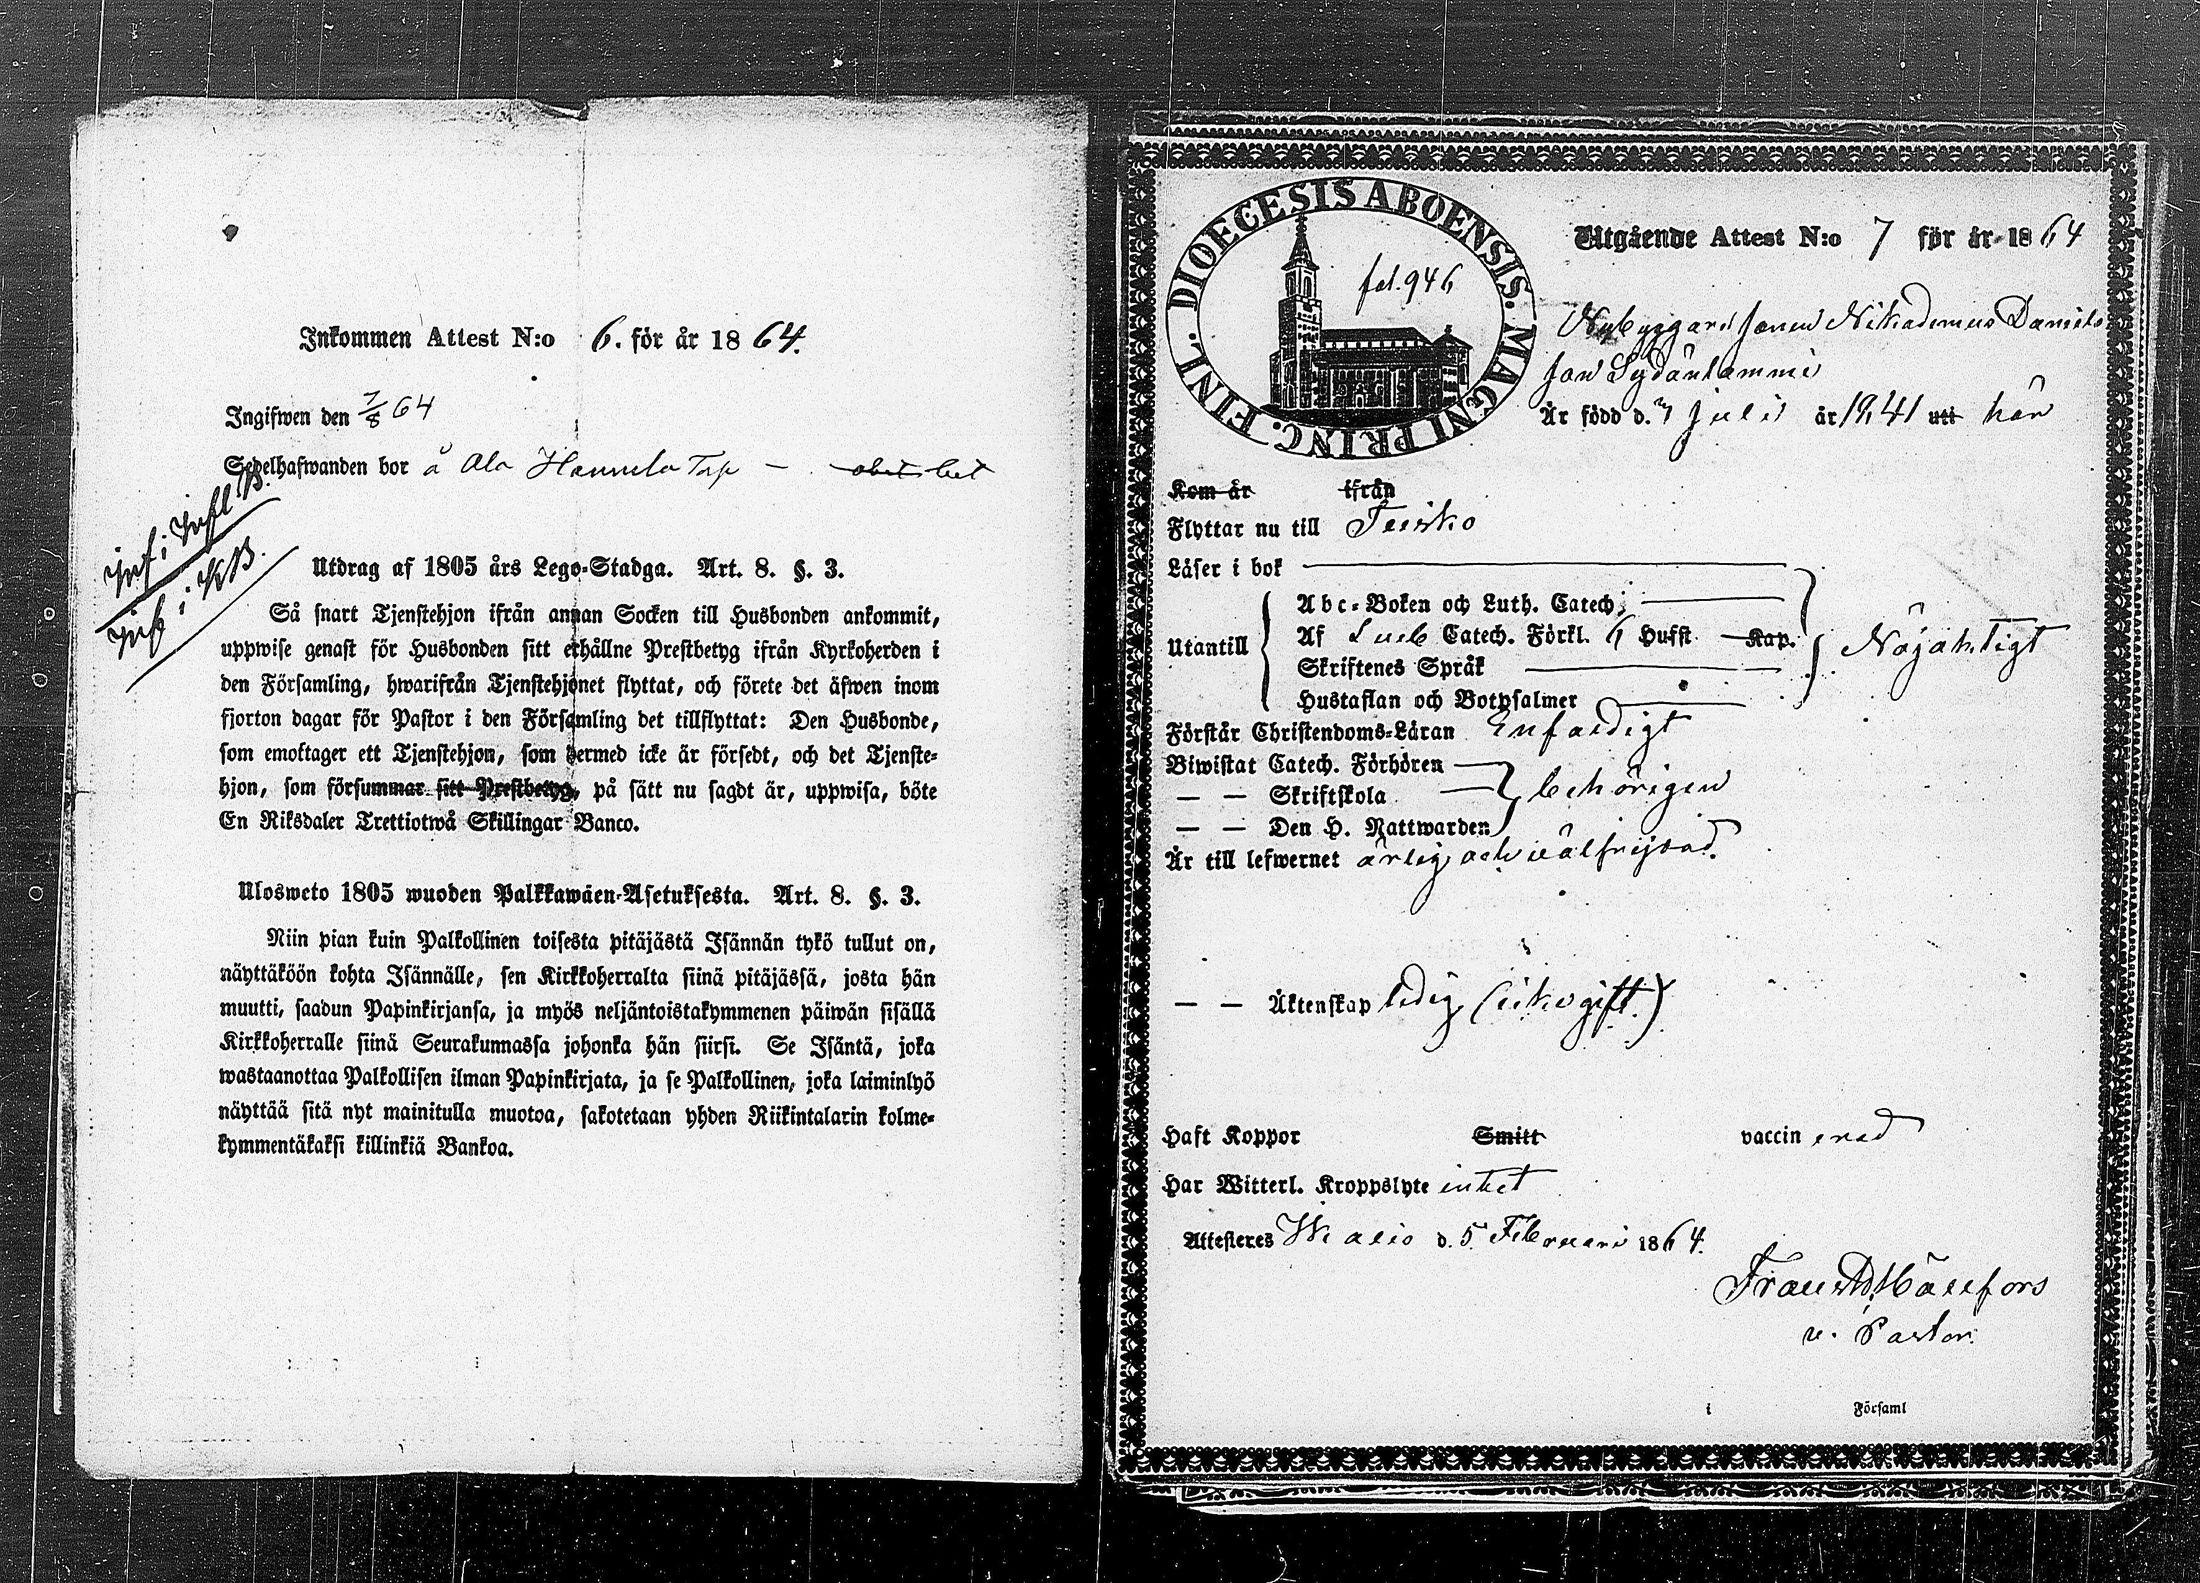 Inkommen Attest N:o 6. för år 1864.
Ingifwen den 7/8 64
Sedelhafwanden bor å Ala Hannula Torp — obet bet
Utdrag af 1805 års Lego-Stadga. Art. 8. §. 3.
Så snart Tjenstehjon ifrån annan Socken till Husbonden ankommit,
uppwise genast för Husbonden sitt erhållne Prestbetyg ifrån Kyrkoherden i
den Församling, hwarifrån Tjenstehjonet flyttat, och förete det äfwen inom
fjorton dagar för Pastor i den Församling det tillflyttat: Den Husbonde,
som emottager ett Tjenstehjon, som dermed icke är försedt, och det Tjenste-
hjon, som försummar sitt Prestbetyg, på sätt nu sagdt är, uppwisa, böte
En Riksdaler Trettiotwå Skillingar Banco.
Ulosweto 1805 wuoden Palkkawäen-Asetuksesta. Art. 8. §. 3.
Niin pian kuin Palkollinen toisesta pitäjästä Isännän tykö tullut on,
näyttäköön kohta Isännälle, sen Kirkkoherralta siinä pitäjässä, josta hän
muutti, saadun Papinkirjansa, ja myös neljäntoistakymmenen päiwän sisällä
Kirkkoherralle siinä Seurakunnassa johonka hän siirsi. Se Isäntä, joka
wastaanottaa Palkollisen ilman Papinkirjata, ja se Palkollinen, joka laiminlyö
näyttää sitä nyt mainitulla muotoa, sakotetaan yhden Riikintalarin kolme-
kymmentäkaksi killinkiä Bankoa.
DIOECESIS ABOENSIS. MAGNI PRINC. FINL.
fol. 946
Utgående Attest N:o 7 för år 1864
Nybyggaresonen Nikodemus Daniels
son Sydänlammi
Är född d. 7 Juli år 1841 utt här
Kom år ifrån
Flyttar nu till Teisko
Läser i bok
Utantill
Abc-Boken och Luth. Catech.
Af Lutb Catech. Förkl. 6 Hufst Kap.
Skriftenes Språk
Hustaflan och Botpsalmer
Nöjaktigt
Förstår Christendoms-Läran Enfaldigt
Biwistat Catech. Förhören
— — Skriftskola
— — Den H. Nattwarden
behörigen
Är till lefwernet ärlig och välfrejdad.
— — Äktenskap ledig (icke gift.)
Haft Koppor Smitt vaccinerad
Har Witterl. Kroppslyte intet
Attesteres d. 5 Februari 1864.
v. Pastor.
i Församl